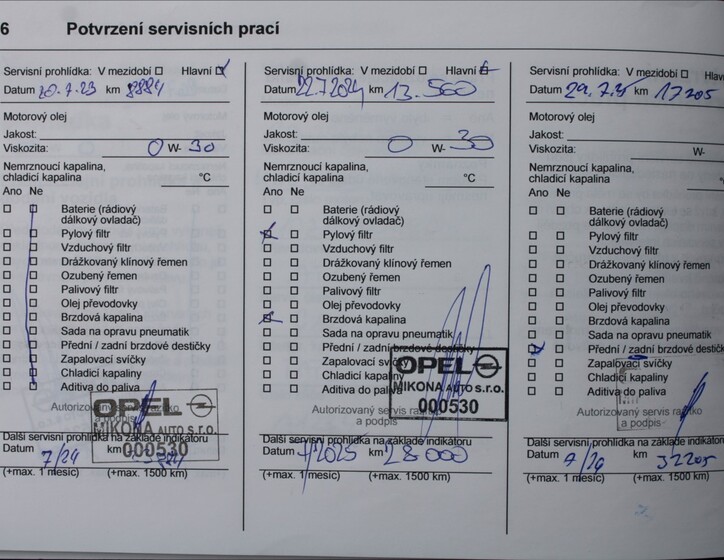 6 Potvrzení servisních prací
Servisní prohlídka: V mezidobí Hlavní
Datum 20.7.23 km 8884
Motorový olej
Jakost:
Viskozita: 0 W- 30
Nemrznoucí kapalina,
chladicí kapalina °C
Ano Ne
Baterie (rádiový
dálkový ovladač)
Pylový filtr
Vzduchový filtr
Drážkovaný klínový řemen
Ozubený řemen
Palivový filtr
Olej převodovky
Brzdová kapalina
Sada na opravu pneumatik
Přední / zadní brzdové destičky
Zapalovací svíčky
Chladicí kapaliny
Aditiva do paliva
Autorizovaný servis
a podpis
OPEL
MIKONA AUTO s.r.o.
000530
Další servisní prohlídka na základě indikátoru
Datum 7/24 km
(+max. 1 měsíc) (+max. 1500 km)
Servisní prohlídka: V mezidobí Hlavní
Datum 22.7.2024 km 13.560
Motorový olej
Jakost:
Viskozita: 0 W- 30
Nemrznoucí kapalina,
chladicí kapalina °C
Ano Ne
Baterie (rádiový
dálkový ovladač)
Pylový filtr
Vzduchový filtr
Drážkovaný klínový řemen
Ozubený řemen
Palivový filtr
Olej převodovky
Brzdová kapalina
Sada na opravu pneumatik
Přední / zadní brzdové destičky
Zapalovací svíčky
Chladicí kapaliny
Aditiva do paliva
OPEL
MIKONA AUTO s.r.o.
000530
Autorizovaný servis
a podpis
Další servisní prohlídka na základě indikátoru
Datum 7/2025 km 28000
(+max. 1 měsíc) (+max. 1500 km)
Servisní prohlídka: V mezidobí
Datum km 17205
Motorový olej
Jakost:
Viskozita: W-
Nemrznoucí kapalina,
chladicí kapalina
Ano Ne
Baterie (rádiový
dálkový ovladač)
Pylový filtr
Vzduchový filtr
Drážkovaný klínový řemen
Ozubený řemen
Palivový filtr
Olej převodovky
Brzdová kapalina
Sada na opravu pneumatik
Přední / zadní brzdové
Zapalovací svíčky
Chladicí kapaliny
Aditiva do paliva
Autorizovaný servis
a podpis
Další servisní prohlídka na základě indikátoru
Datum 7/26 km 32205
(+max. 1 měsíc) (+max. 1500 km)